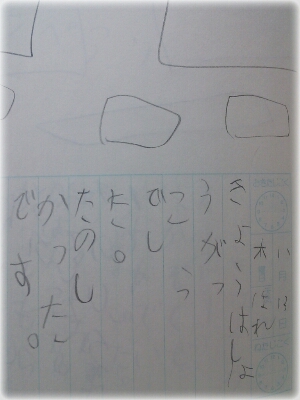 月 日
木 はれ
きょうはしょ
うがっ
こう
でし
た。
たのし
かった
です。